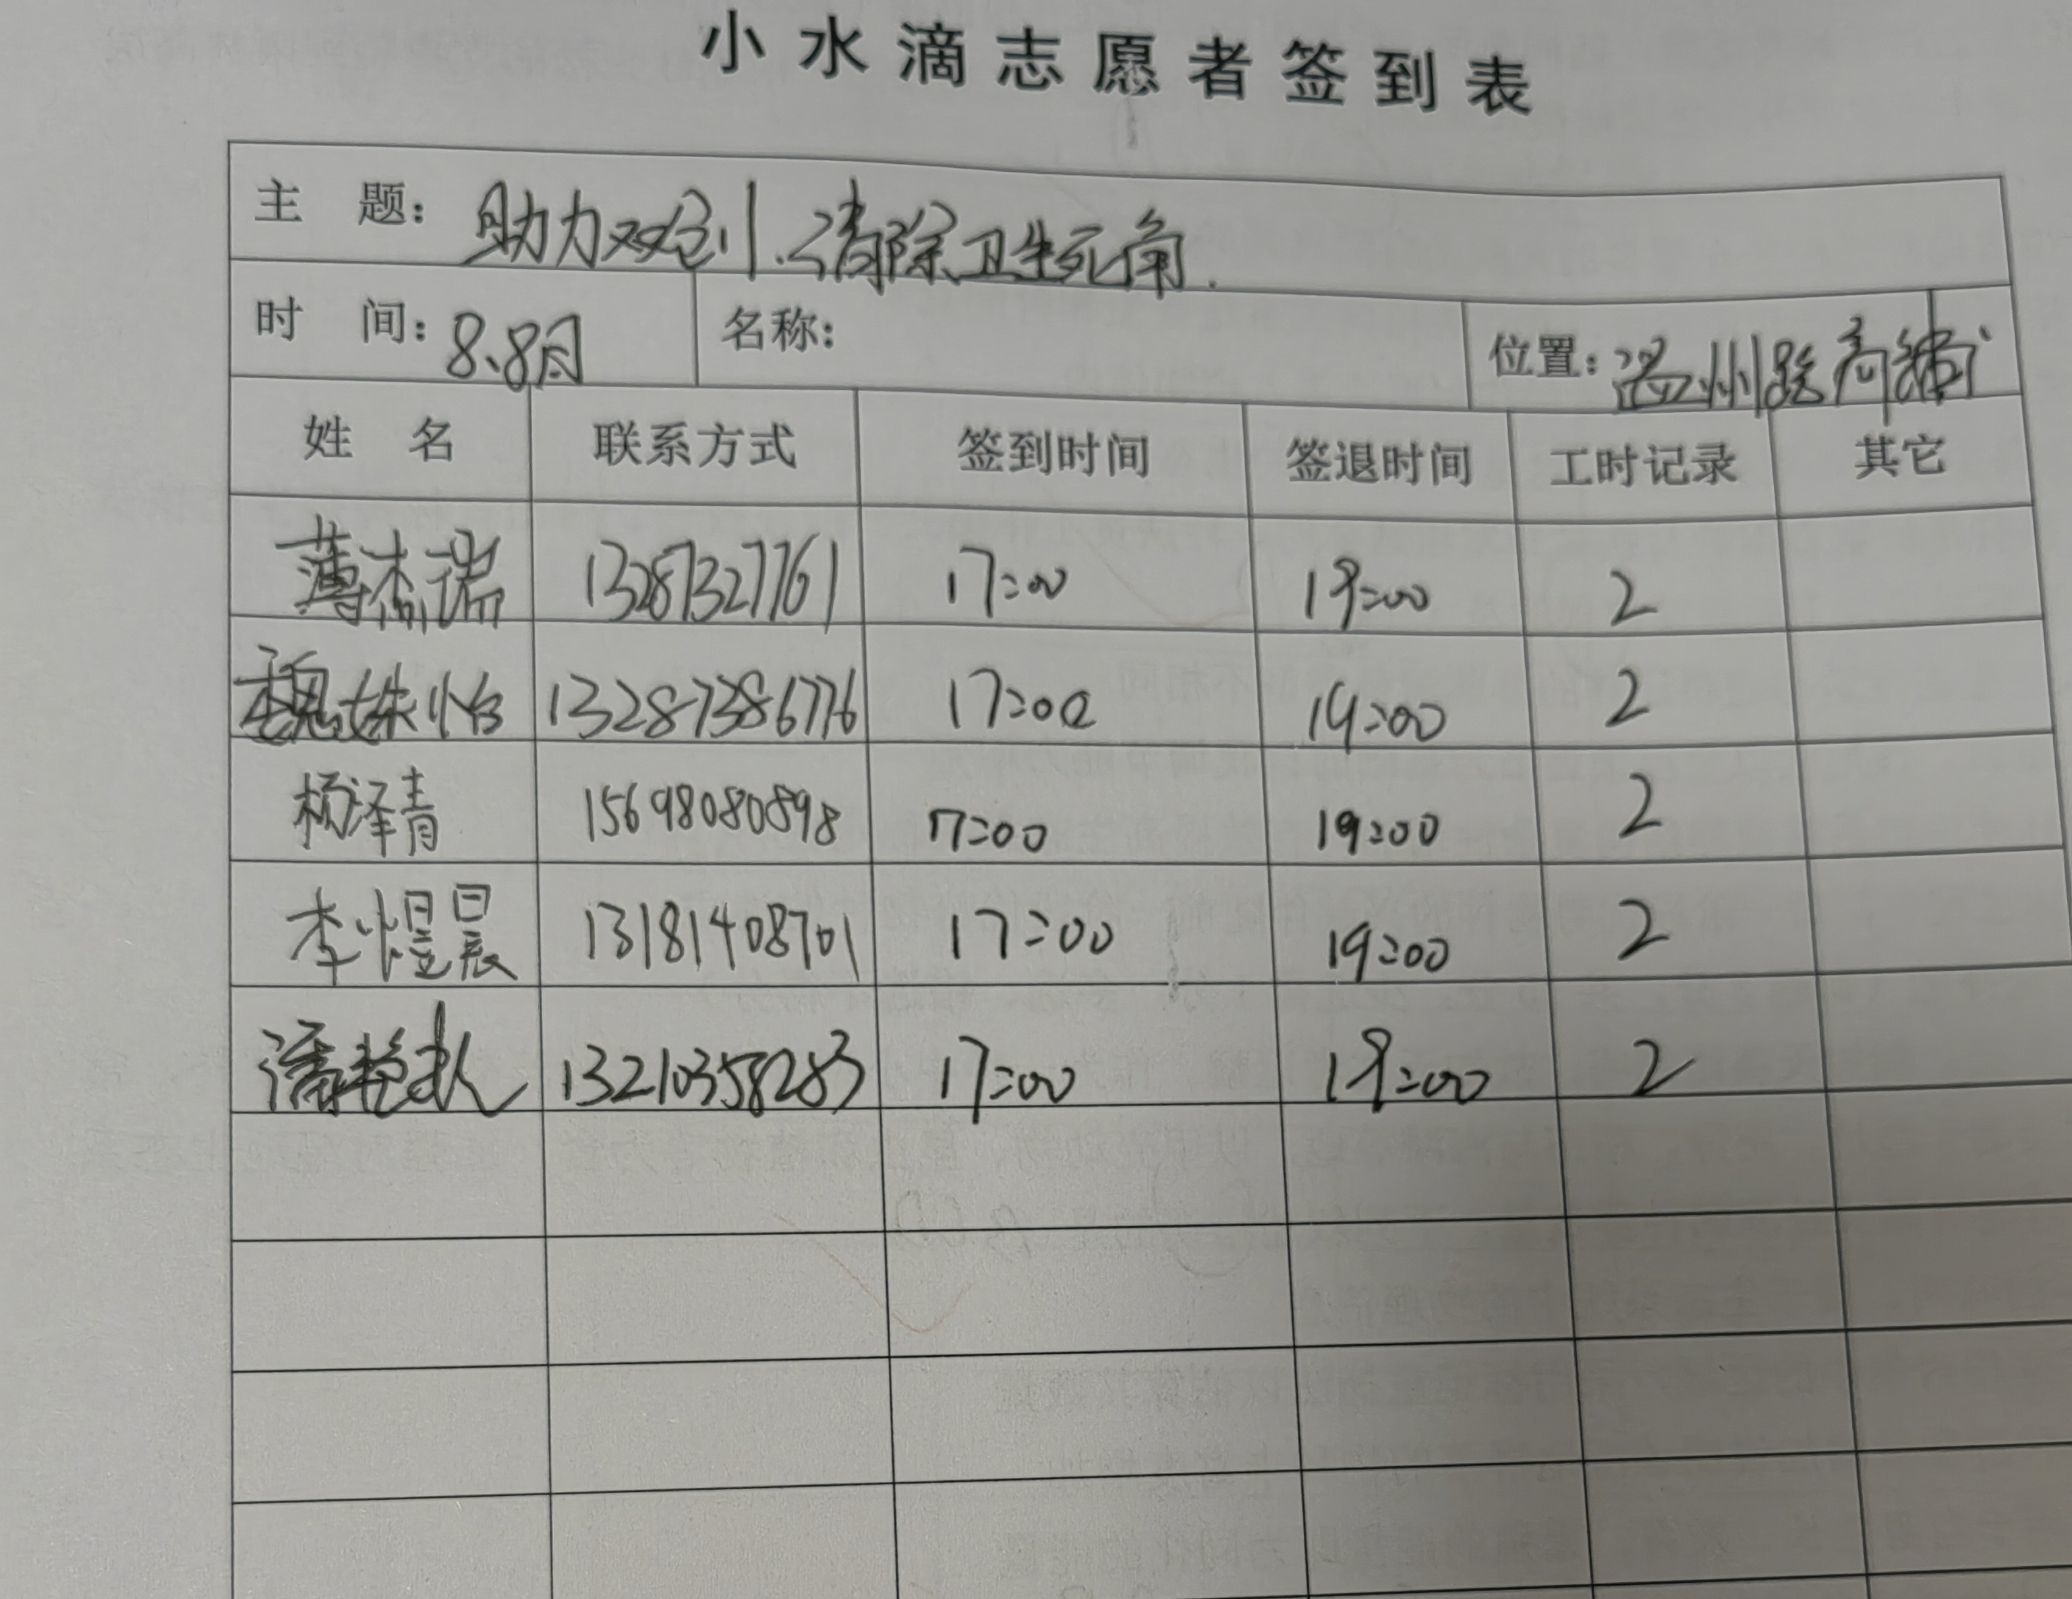 小水滴志愿者签到表
主 题: 助力双创、清除卫生死角.
时 间: 8.8日 名称: 位置: 温州路高铺
姓 名 联系方式 签到时间 签退时间 工时记录 其它
薄杰瑞 13287327761 17:00 19:00 2
魏姝怡 13287386776 17:00 19:00 2
杨泽青 15698080898 17:00 19:00 2
李煜晨 13181408701 17:00 19:00 2
潘艳秋 13210358283 17:00 19:00 2